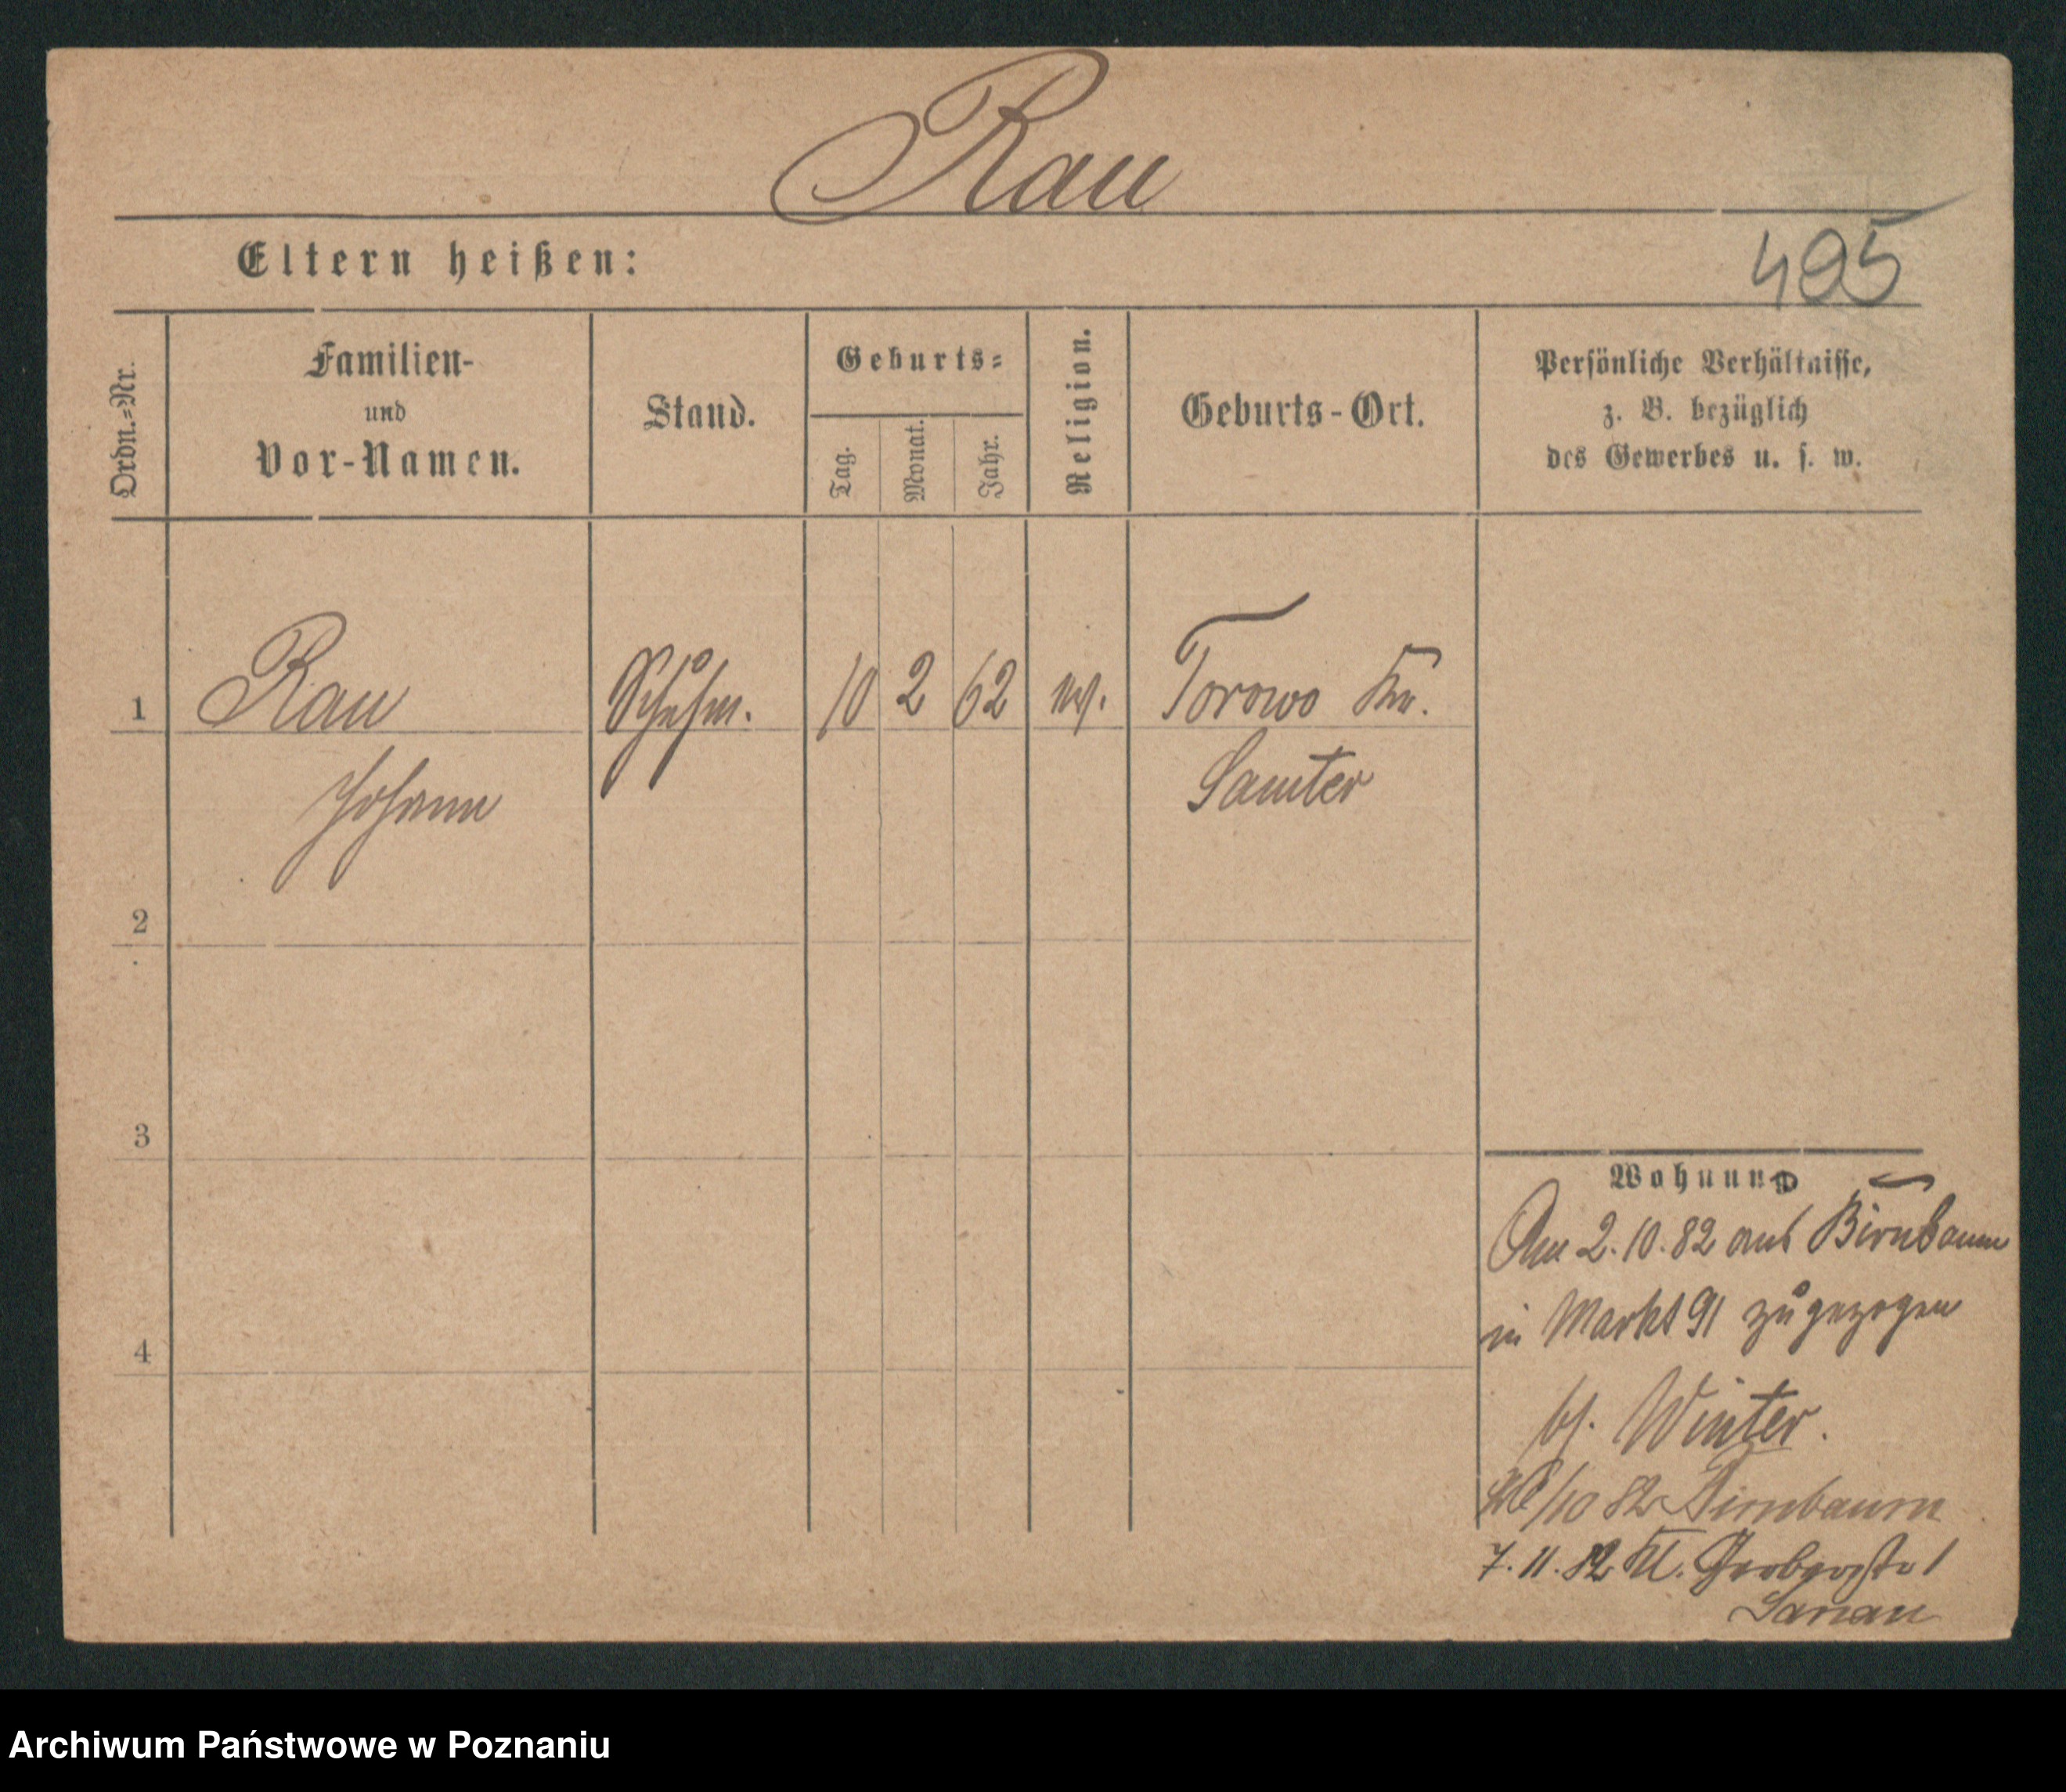 Rau
Eltern heißen:
495
Ordn.=Nr.
Familien-
und
Vor-Namen.
Stand.
Geburts=
Tag.
Monat.
Jahr.
Religion.
Geburts-Ort.
Persönliche Verhältnisse,
z. B. bezüglich
des Gewerbes u. s. w.
1
Rau
Schuhm.
10
2
62
Torowo Kr.
Johann
Samter
2
3
4
Wohnung
Am 2.10.82 aus Birnbaum
in Markt 91 zugezogen
bj. Winter.
/10 82 Birnbaum
7.11.82 Kl. Gerberstr 1